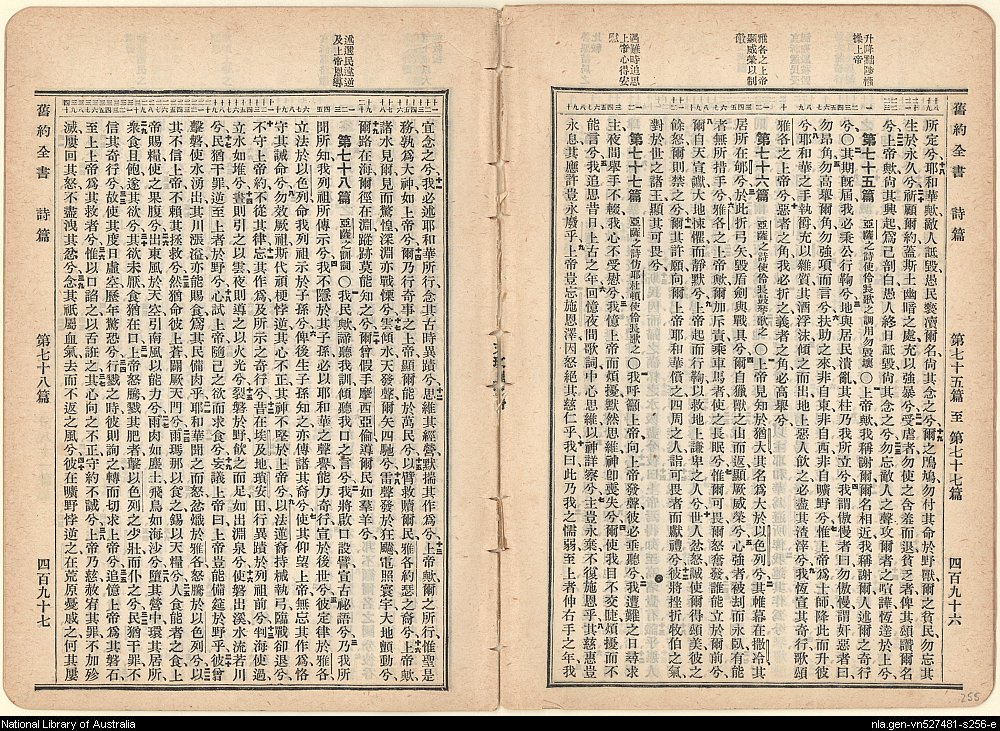 舊約全書 詩篇 第七十五篇至第七十七篇 四百九十六
升降黜陟惟
操上帝
雅各之上帝
顯威榮以制
敵
遇難時追思
上帝心得安
慰
所定兮耶和華歟敵人詆毀愚民褻瀆爾名尙其念之兮爾之鳲鳩勿付其命於野獸爾之貧民勿忘其
生於永久兮祈顧爾約蓋斯土幽暗之處充以強暴兮受虐者勿使之含羞而退貧乏者俾其頌讚爾名
兮上帝歟尙其興起爲己剖白愚人終日詆毀尙其念之兮勿忘敵人之聲攻爾者之喧譁恆達於上兮
第七十五篇 亞薩之詩使伶長歌之調用勿毀壞〇上帝歟我稱謝爾爾名相近我稱謝爾人述爾之奇行
兮〇其期旣屆我必秉公行鞫兮地與居民潰亂其柱乃我所立兮我謂傲慢者曰勿傲慢謂奸惡者曰
勿昂角勿高舉爾角勿強項而言兮扶助之來非自東非自西非自曠野兮惟上帝爲士師降此而升彼
兮耶和華之手執爵充以雜質其酒浮沫傾之而出地上惡人飲之必盡其渣滓兮我恆宣其奇行歌頌
雅各之上帝兮惡者之角我必折之義者之角必高舉兮
第七十六篇 亞薩之詩使伶長鼓琴歌之〇上帝見知於猶大其名爲大於以色列兮其帷幕在撒冷其
居所在郇兮於此折弓矢毀盾劍與戰具兮爾自獵獸之山而返顯厥威榮兮心強者被刦而永臥有能
者無所措手兮雅各之上帝歟爾加斥責乘車馬者使之長眠兮惟爾可畏爾怒奮發誰能立於爾前兮
爾自天宣讞大地悚懼而靜默兮上帝起而行鞫以救地上謙卑之人兮世人忿怒緘使爾得頌美彼之
餘怒爾則禁之兮爾其許願向爾上帝耶和華償之四周之人詣可畏者而獻禮兮彼將挫折牧伯之氣
對於世之諸王顯其可畏兮
第七十七篇 亞薩之詩仿耶杜頓使伶長歌之〇我呼籲上帝向上帝發聲彼必垂聽兮我遭難之日尋求
主夜間舉手不輟我心不受慰兮我憶上帝而煩擾默然思維神卽喪失兮爾使我目不交睫煩擾而不
能言兮我追思昔日上古之年回憶夜間歌詞中心思維以神詳察兮主豈永棄不復施恩乎其慈惠豈
永息其應許豈永廢乎上帝豈忘施恩澤因怒絕其慈仁乎我曰此乃我之懦弱至上者伸右手之年我
舊約全書 詩篇 第七十八篇 四百九十七
述選民違逆
及上帝恩導
宜念之兮我必述耶和華所行念其古時異蹟兮思維其經營默揣其作爲兮上帝歟爾之所行惟聖是
務孰爲大神如上帝兮爾乃行奇事之上帝顯爾能於萬民兮以臂救贖爾民雅各約瑟之裔兮上帝歟
諸水見爾見爾而驚惶深淵亦戰慄兮雲傾水天發聲爾矢四馳兮雷聲發於狂飈電照寰宇大地顫動兮
爾路在海爾徑在淵蹤跡莫能知之兮爾曾假手摩西亞倫導爾民如羣羊兮
第七十八篇 亞薩之訓詞〇我民歟諦聽我訓傾聽我口之言兮我將啟口設譬宣古祕語兮乃我所
聞所知我列祖所傳示兮我不隱於其子孫必以耶和華之聲譽能力奇行宣於後世兮彼定律於雅各
立法於以色列命我列祖示於子孫兮俾後生子孫知之亦傳諸其裔兮使其仰望上帝無忘其作爲恪
守其誡命兮勿效厥祖斯代頑梗悖逆其心不正其神不堅於上帝兮以法蓮裔持械執弓臨戰卻退兮
不守上帝約不從其律忘其作爲及所示之奇行兮昔在埃及地瑣安田行異蹟於列祖前兮判海使過
立水如堆兮晝則引之以雲夜則導之以火光兮裂磐於野飲之而足如出淵泉兮使磐出溪水流若川
兮民猶干罪逆至上者於野兮心試上帝隨己之欲而求食兮妄議上帝曰上帝豈能備筵於野乎彼曾
擊磐使水湧出其川漲溢亦能賜食爲其民備肉乎耶和華聞之而怒忿熾於雅各怒騰於以色列兮以
其不信上帝不賴其拯救兮然猶命彼上蒼闢厥天門兮雨瑪那以食之錫以天糧兮人食能者之食上
帝賜糧使之果腹兮出東風於天空引南風以能力兮雨肉如塵土飛鳥如海沙兮墮其營中環其居所
衆食且飽遂其欲兮其欲未厭食猶在口上帝怒騰戮其肥者擊以色列之少壯而仆之兮民猶干罪不
信其奇行兮故使其度日虛空歷年驚恐兮行戮之時彼則詢之轉而切求上帝兮追憶上帝爲其磐石
至上上帝爲其救者兮惟以口諂之以舌誑之其心向之不正守約不誠兮上帝乃慈赦宥其罪不加殄
滅屢回其怒不盡洩其忿兮念其祇屬血氣去而不返之風兮彼在曠野悖逆之在荒原憂戚之何其屢
255
National Library of Australia
nla.gen-vn527481-s256-e